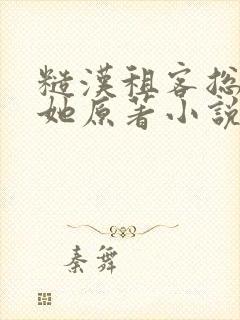 糙漢租客總
她原著小說
秦舞